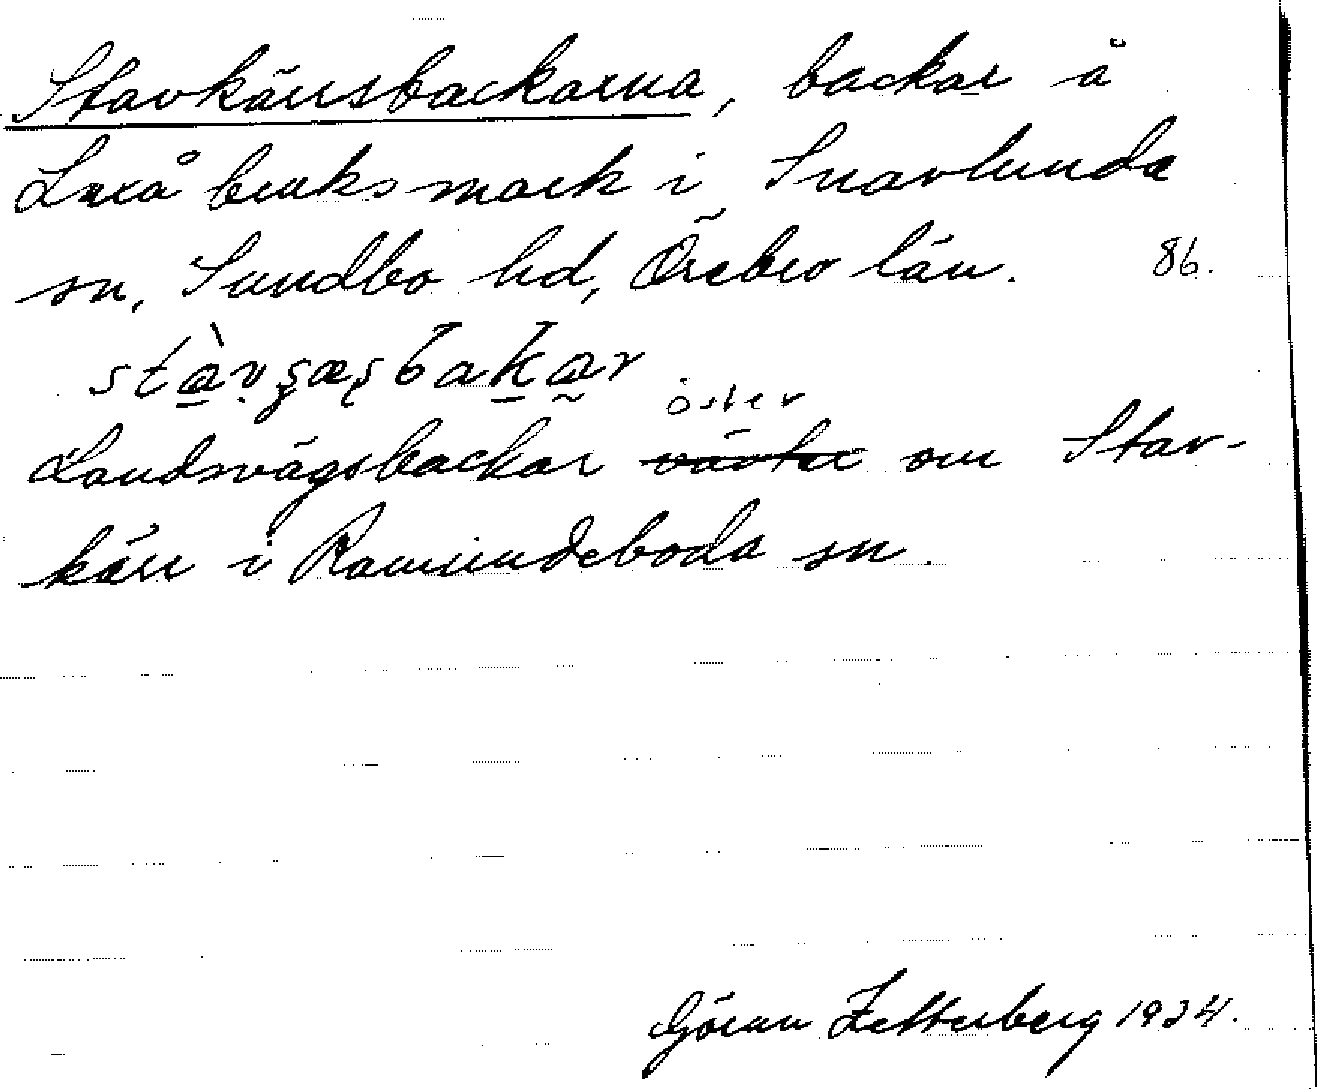 Stavkärrsbackarna, backar å
Laxå bruks mark i Snavlunda
sn, Sundbo hd, Örebro län. 86.
öster
Landsvägsbackar väster om Stav-
kärr i Ramundeboda sn.
Göran Zetterberg 1934.